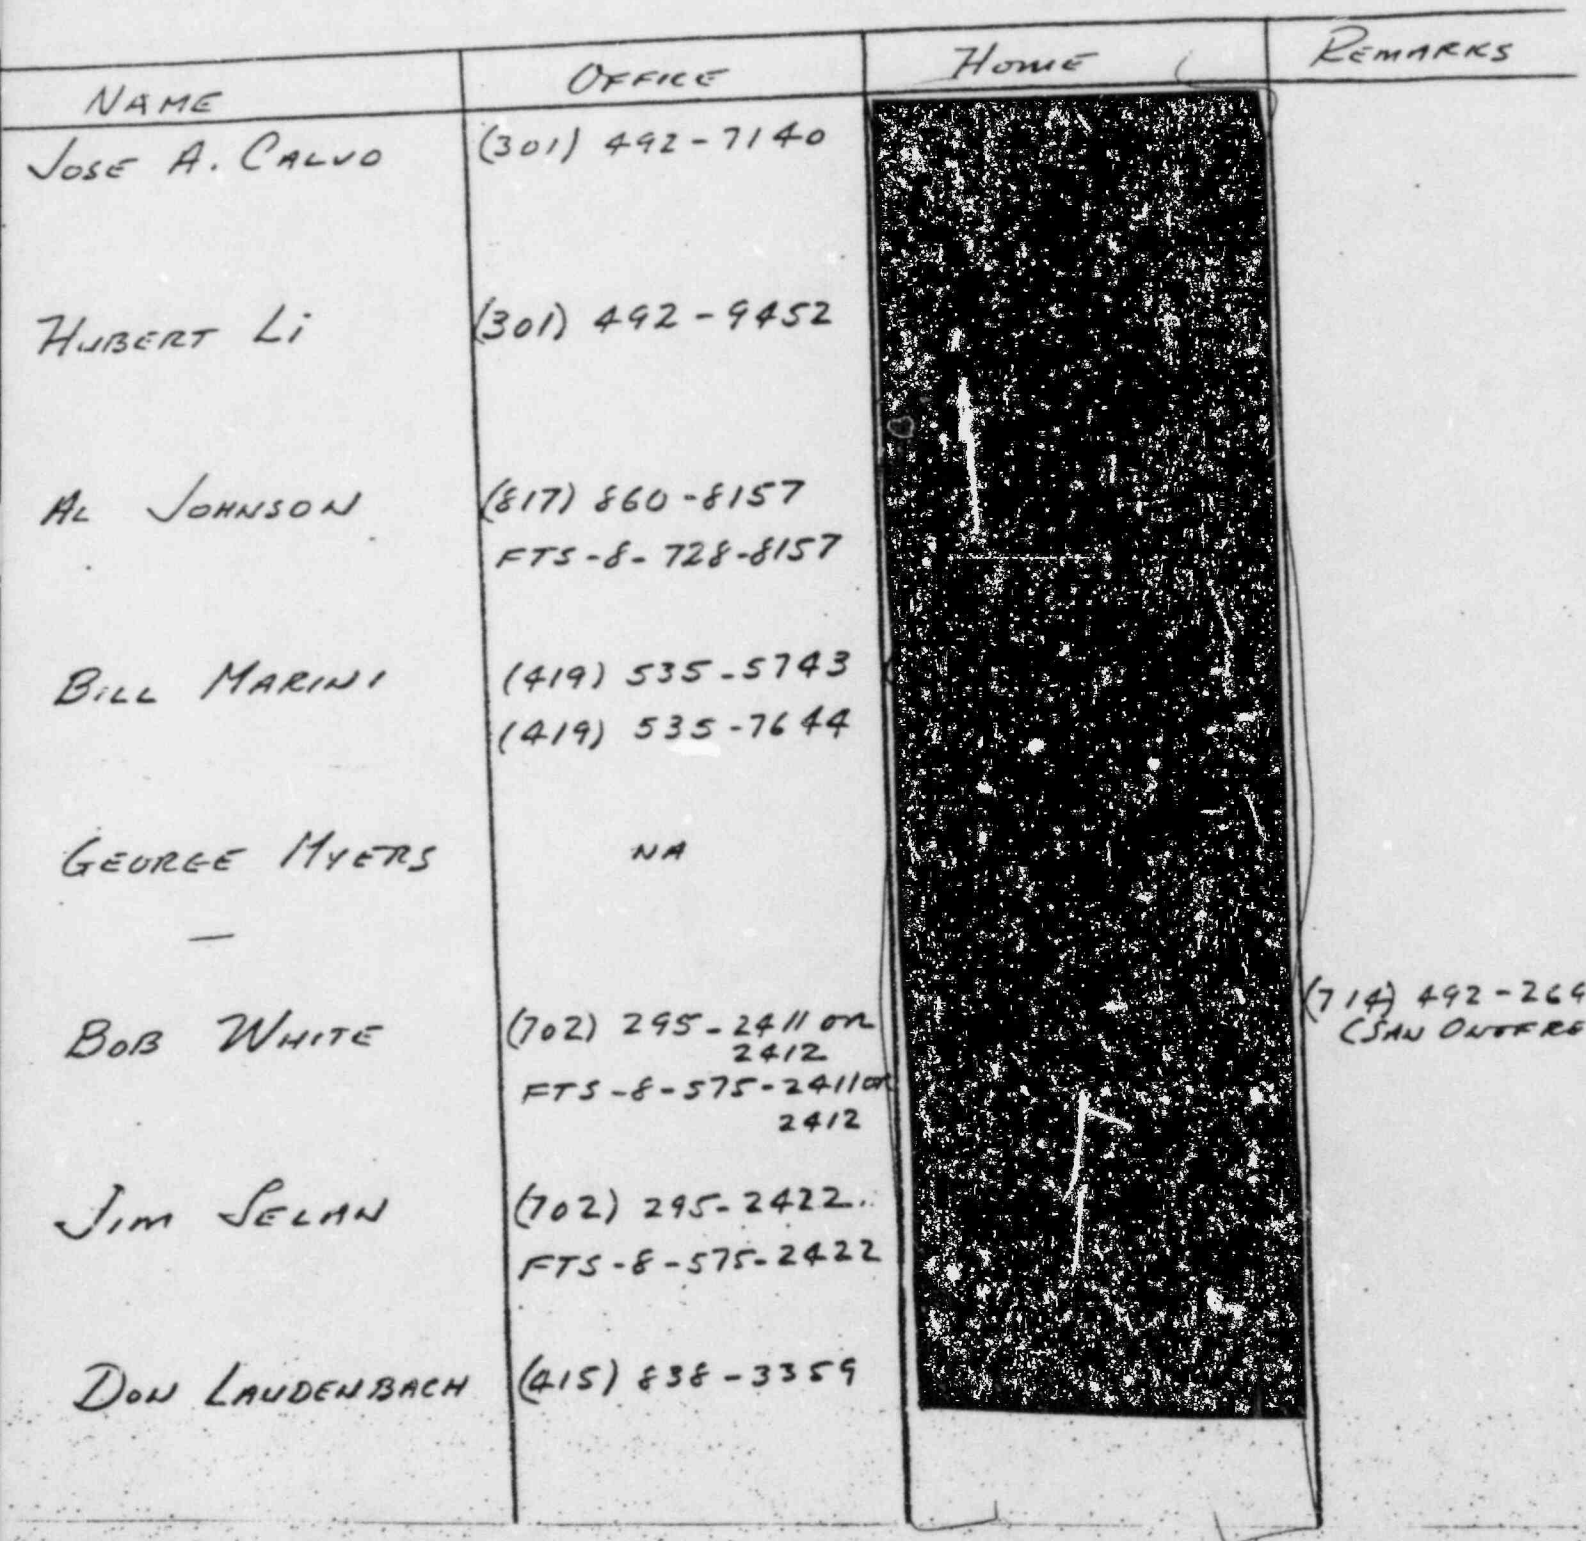 NAME OFFICE HOME REMARKS
JOSE A. CALVO (301) 492-7140
HUBERT Li (301) 492-9452
AL JOHNSON (817) 860-8157
FTS-8-728-8157
BILL MARINI (419) 535-5743
(419) 535-7644
GEORGE MYERS NA
—
BOB WHITE (702) 295-2411 OR (714) 492-269
2412 (SAN ONOFRE
FTS-8-575-2411 OR
2412
JIM (702) 295-2422
FTS-8-575-2422
DON LAUDENBACH (415) 838-3359